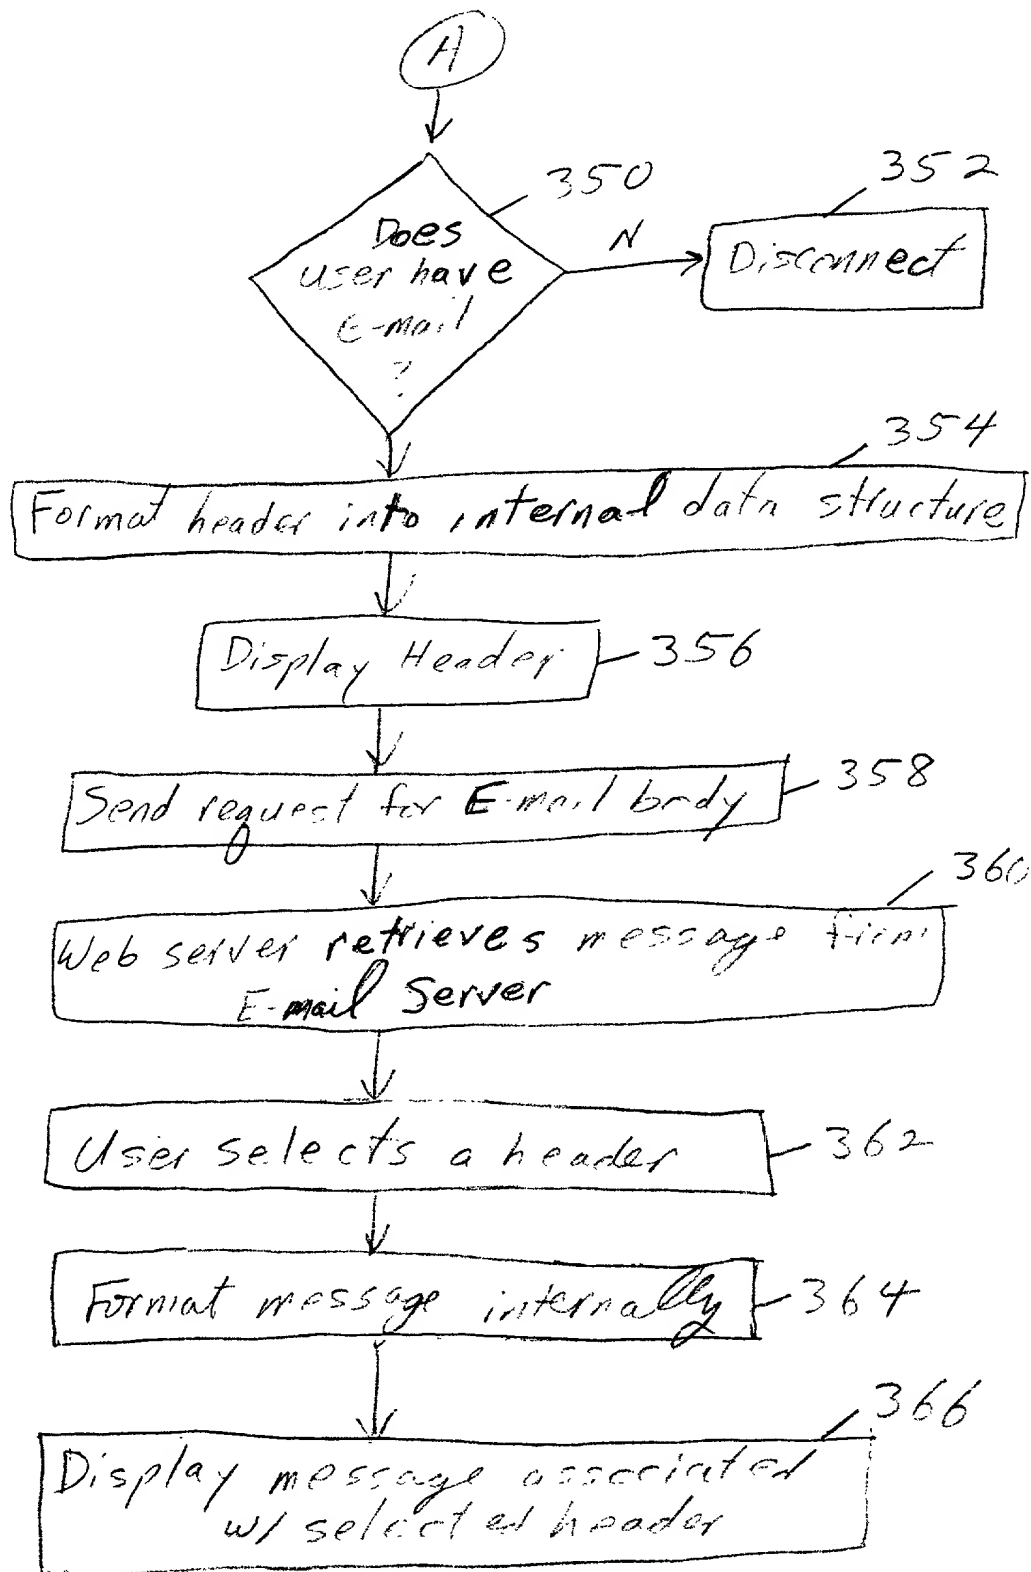 A
350
352
Does
user have
E-mail
?
N
Disconnect
354
Format header into internal data structure
Display Header
356
Send request for E-mail body
358
360
Web server retrieves message from
E-mail Server
User selects a header
362
Format message internally
364
366
Display message associated
w/ selected header